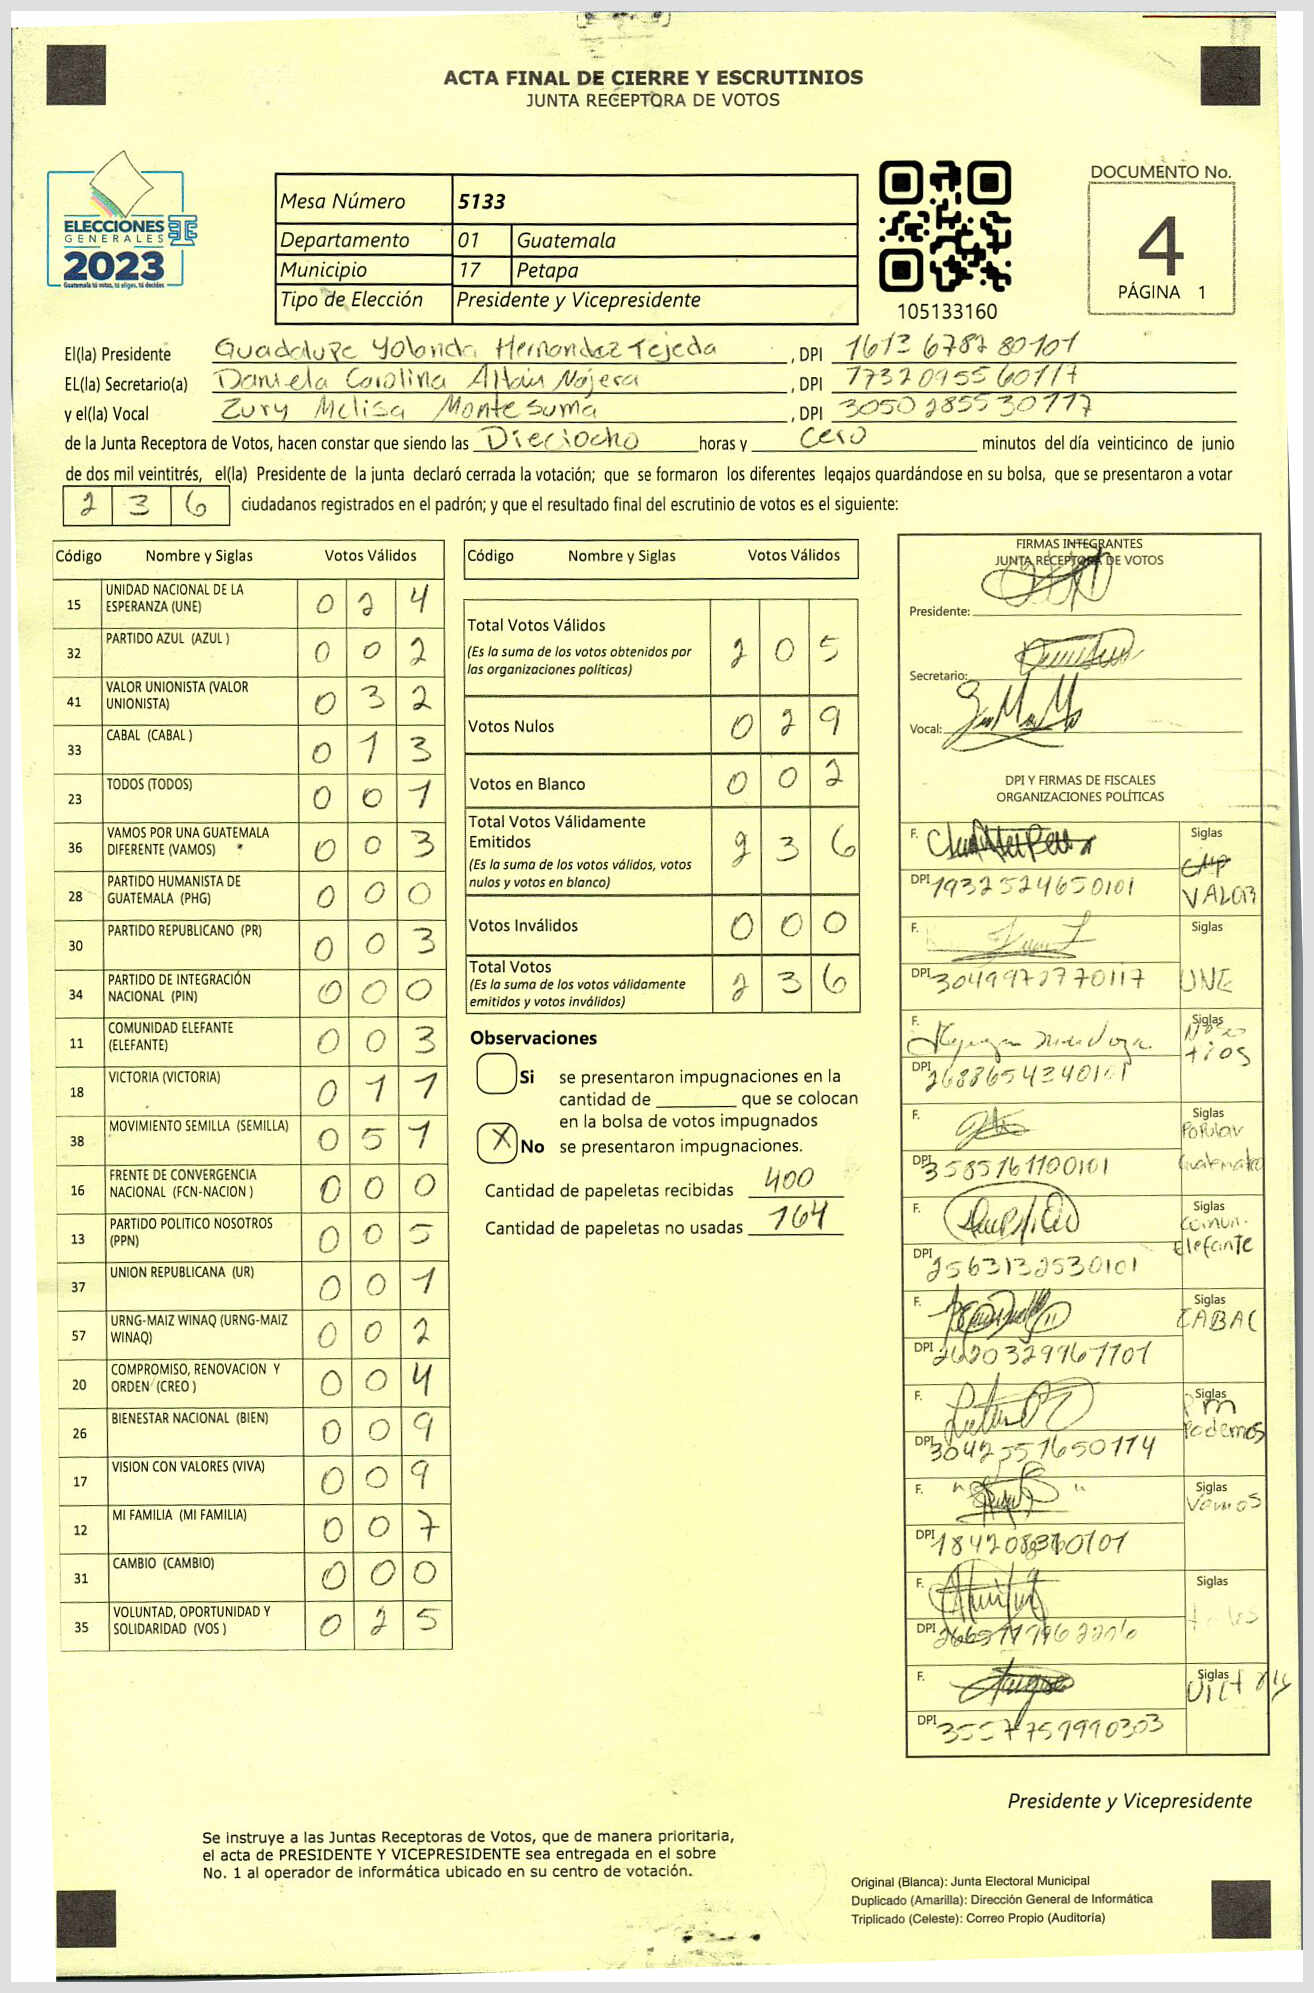 ACTA FINAL DE CIERRE Y ESCRUTINIOS
JUNTA RECEPTORA DE VOTOS
ELECCIONES
GENERALES
2023
Guatemala tú votas, tú eliges, tú decides
Mesa Número 5133
Departamento 01 Guatemala
Municipio 17 Petapa
Tipo de Elección Presidente y Vicepresidente
105133160
DOCUMENTO No.
4
PÁGINA 1
El(la) Presidente Guadalupe Yolanda Hernandez Tejeda, DPI 1613 6787 80101
EL(la) Secretario(a) Daniela Carolina Najera, DPI 1732095560117
y el(la) Vocal Zury Melisa Montesuma, DPI 3050285530117
de la Junta Receptora de Votos, hacen constar que siendo las Dieciocho horas y cero minutos del día veinticinco de junio
de dos mil veintitrés, el(la) Presidente de la junta declaró cerrada la votación; que se formaron los diferentes legajos guardándose en su bolsa, que se presentaron a votar
2 3 6 ciudadanos registrados en el padrón; y que el resultado final del escrutinio de votos es el siguiente:
Código Nombre y Siglas Votos Válidos
15 UNIDAD NACIONAL DE LA ESPERANZA (UNE) 0 2 4
32 PARTIDO AZUL (AZUL ) 0 0 2
41 VALOR UNIONISTA (VALOR UNIONISTA) 0 3 2
33 CABAL (CABAL ) 0 1 3
23 TODOS (TODOS) 0 0 1
36 VAMOS POR UNA GUATEMALA DIFERENTE (VAMOS) 0 0 3
28 PARTIDO HUMANISTA DE GUATEMALA (PHG) 0 0 0
30 PARTIDO REPUBLICANO (PR) 0 0 3
34 PARTIDO DE INTEGRACIÓN NACIONAL (PIN) 0 0 0
11 COMUNIDAD ELEFANTE (ELEFANTE) 0 0 3
18 VICTORIA (VICTORIA) 0 1 1
38 MOVIMIENTO SEMILLA (SEMILLA) 0 5 1
16 FRENTE DE CONVERGENCIA NACIONAL (FCN-NACION ) 0 0 0
13 PARTIDO POLITICO NOSOTROS (PPN) 0 0 5
37 UNION REPUBLICANA (UR) 0 0 1
57 URNG-MAIZ WINAQ (URNG-MAIZ WINAQ) 0 0 2
20 COMPROMISO, RENOVACION Y ORDEN (CREO ) 0 0 4
26 BIENESTAR NACIONAL (BIEN) 0 0 9
17 VISION CON VALORES (VIVA) 0 0 9
12 MI FAMILIA (MI FAMILIA) 0 0 7
31 CAMBIO (CAMBIO) 0 0 0
35 VOLUNTAD, OPORTUNIDAD Y SOLIDARIDAD (VOS ) 0 2 5
Código Nombre y Siglas Votos Válidos
Total Votos Válidos 2 0 5
(Es la suma de los votos obtenidos por
las organizaciones políticas)
Votos Nulos 0 2 9
Votos en Blanco 0 0 2
Total Votos Válidamente
Emitidos 2 3 6
(Es la suma de los votos válidos, votos
nulos y votos en blanco)
Votos Inválidos 0 0 0
Total Votos 2 3 6
(Es la suma de los votos válidamente
emitidos y votos inválidos)
Observaciones
Si se presentaron impugnaciones en la
cantidad de ________ que se colocan
en la bolsa de votos impugnados
X No se presentaron impugnaciones.
Cantidad de papeletas recibidas 400
Cantidad de papeletas no usadas 164
FIRMAS INTEGRANTES
JUNTA RECEPTORA DE VOTOS
Presidente:
Secretario:
Vocal:
DPI Y FIRMAS DE FISCALES
ORGANIZACIONES POLÍTICAS
F. Siglas
DPI 1932524650101 VALOR
F. Siglas
DPI 3049972770117 UNE
F. Siglas
DPI 2688654340101
F. Siglas Popular
DPI 3585161100101
F. Siglas Comun. Elefante
DPI 2563132530101
F. Siglas CABAL
DPI
F. Siglas Podemos
DPI 3042551650114
F. Siglas Vamos
DPI
F. Siglas
DPI
F. Siglas
DPI 3557759990303
Presidente y Vicepresidente
Se instruye a las Juntas Receptoras de Votos, que de manera prioritaria,
el acta de PRESIDENTE Y VICEPRESIDENTE sea entregada en el sobre
No. 1 al operador de informática ubicado en su centro de votación.
Original (Blanca): Junta Electoral Municipal
Duplicado (Amarilla): Dirección General de Informática
Triplicado (Celeste): Correo Propio (Auditoría)